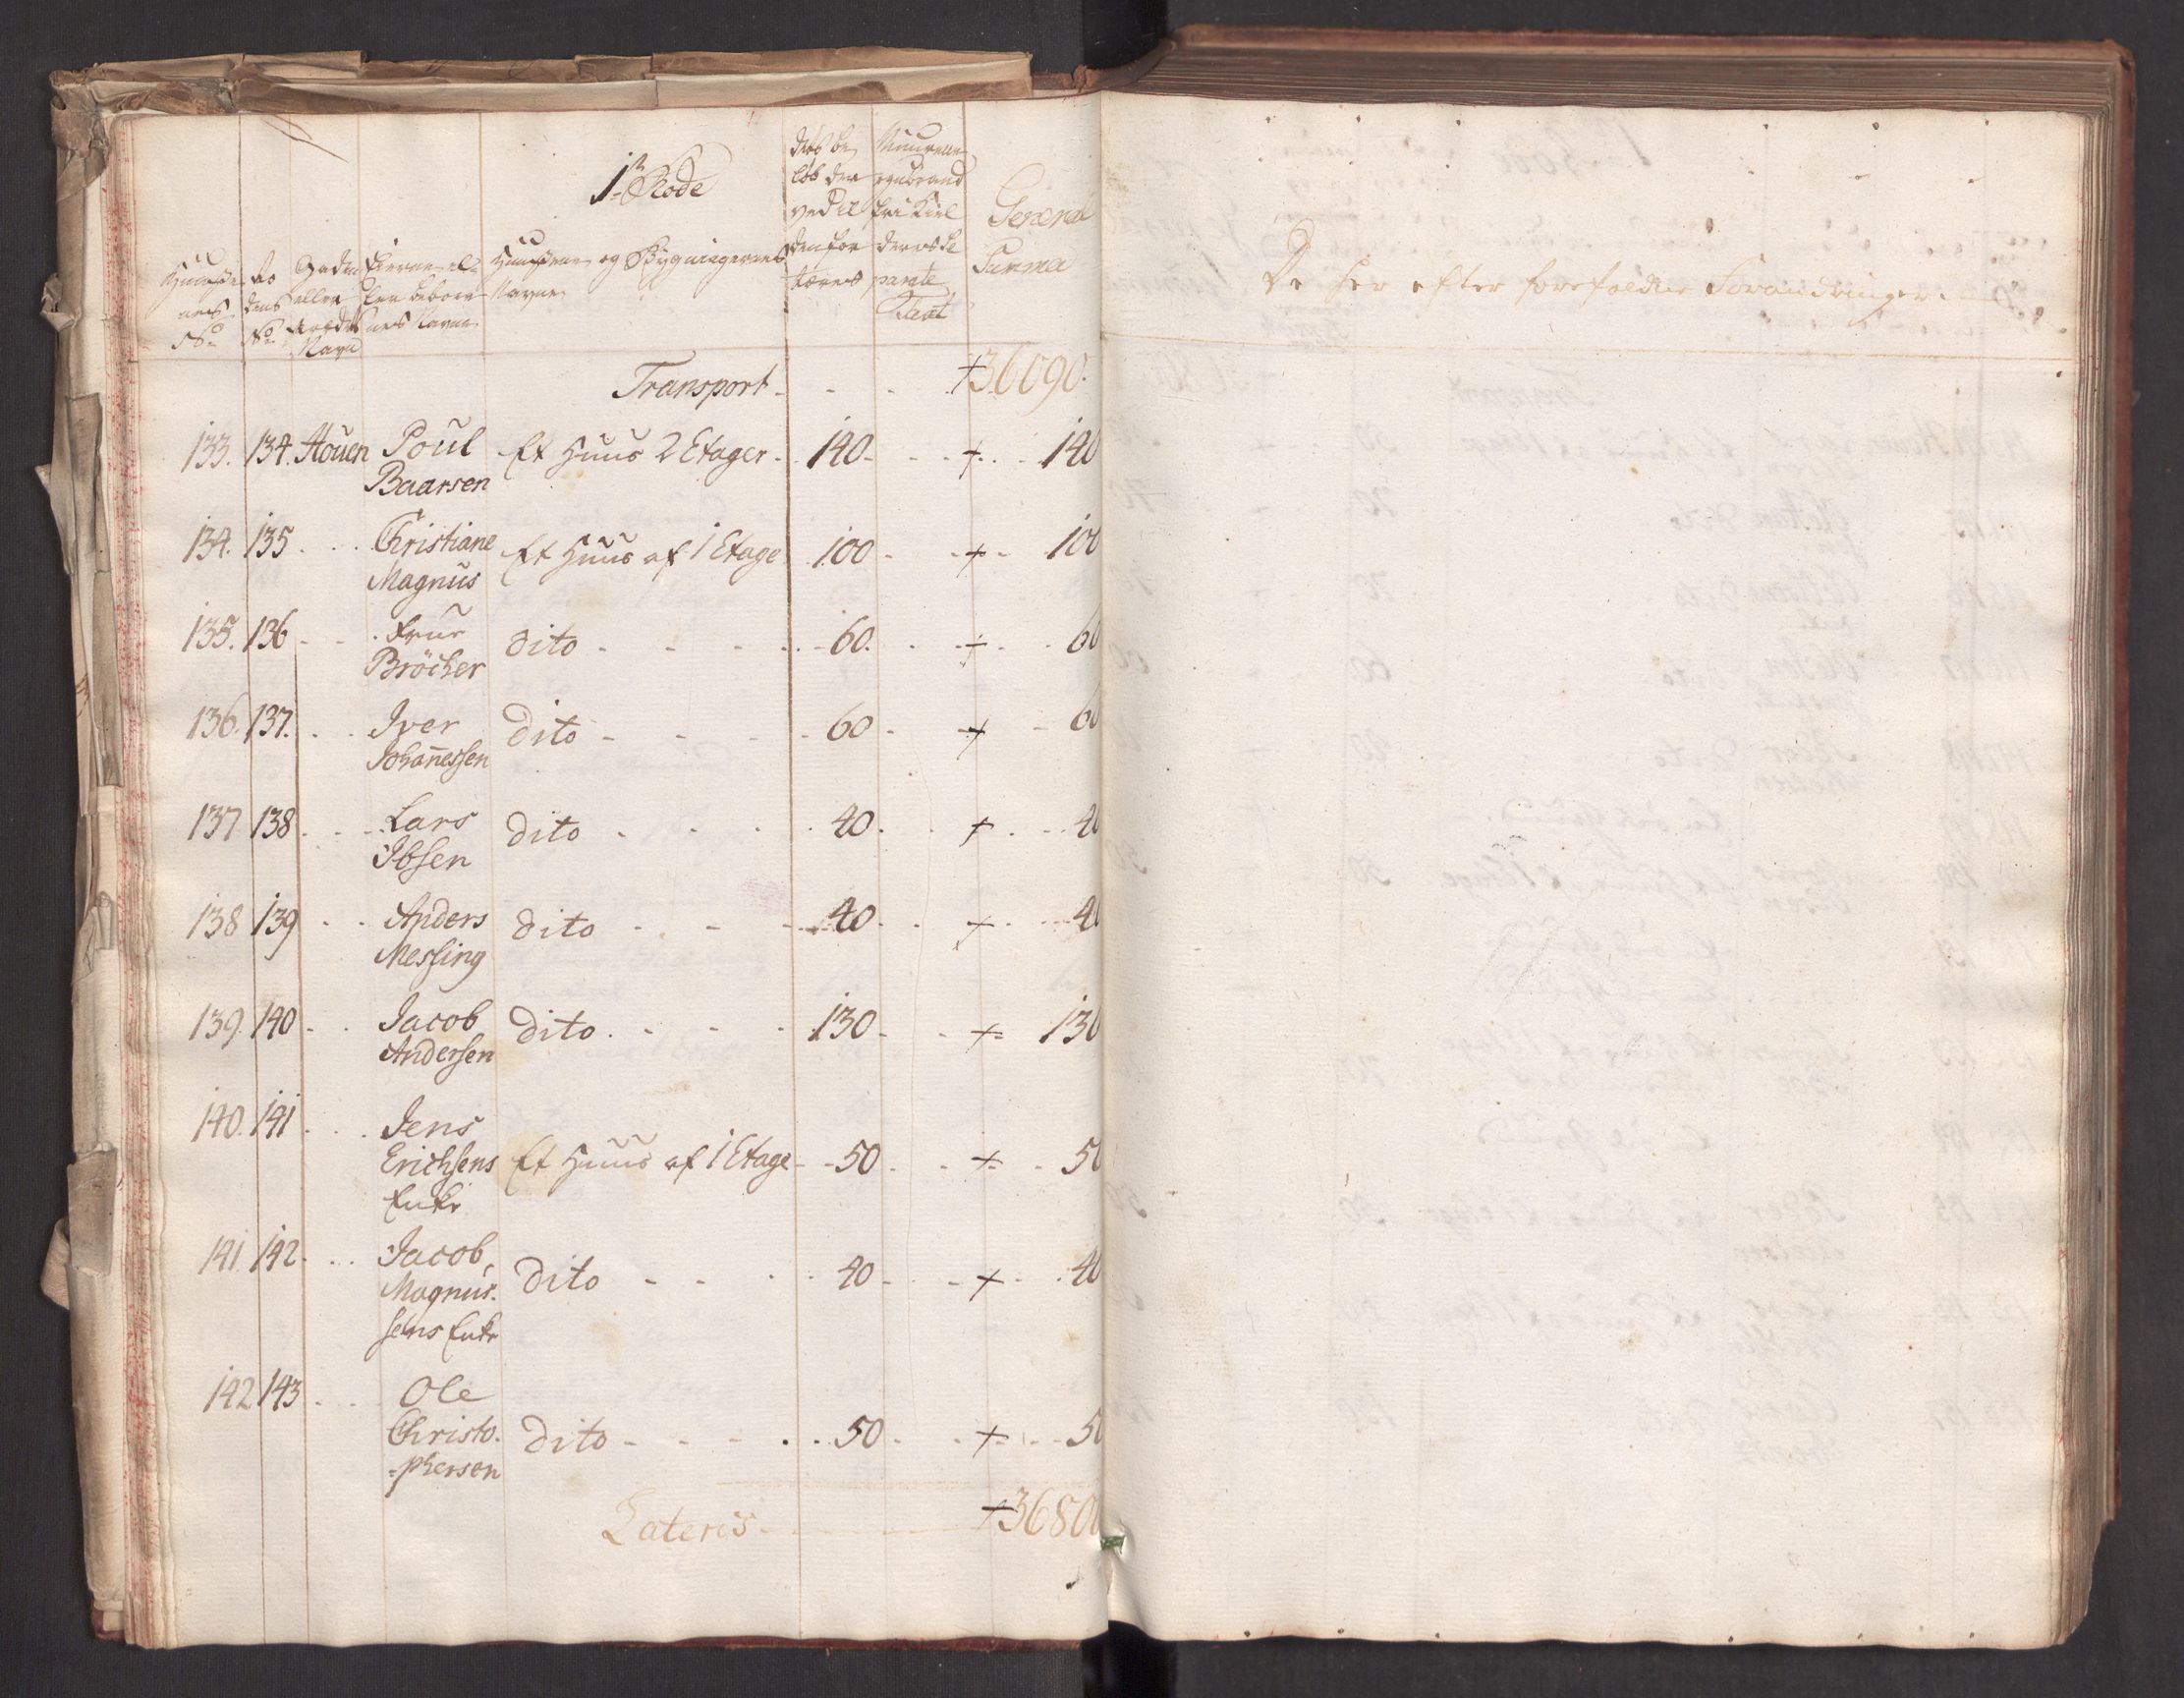 1te Rode
Huusenes No
Rodens No
Gaden eller Strædets Navn
Eiernes eller Beboernes Navne
Huusene og Bygningernes Navne
General Summa
Taxt
Transport - - - + 36090.
133. 134. Houen Poul Et Huus 2 Etager - 140 - - + - 140
Baarsen
134. 135 - - Christiane Et Huus af 1 Etage 100 - - + - 100
Magnus
135. 136 - - Frue dito - - - 60. - + - 60
Bröcher
136. 137. - - Iver dito - - - 60 - + - 60
Johan̄essen
137 138 - - Lars dito - - - 40. - + - 40
Ibsen
138 139 - - Anders dito - - - 40 - + - 40
Messing
139. 140 - - Jacob dito - - - 130 - + - 130
Andersen
140. 141 - - Jens
Erichsens Et Huus af 1 Etage - 50 - + - 50
Enke
141. 142 - - Jacob
Magnus- dito - - - 40 - + - 40
sens Enke
142 143 - - Ole
Christo- dito - - - 50 - + - 50
-phersen
Lateris - - - + 36800
De her efter forefaldne Forandringer